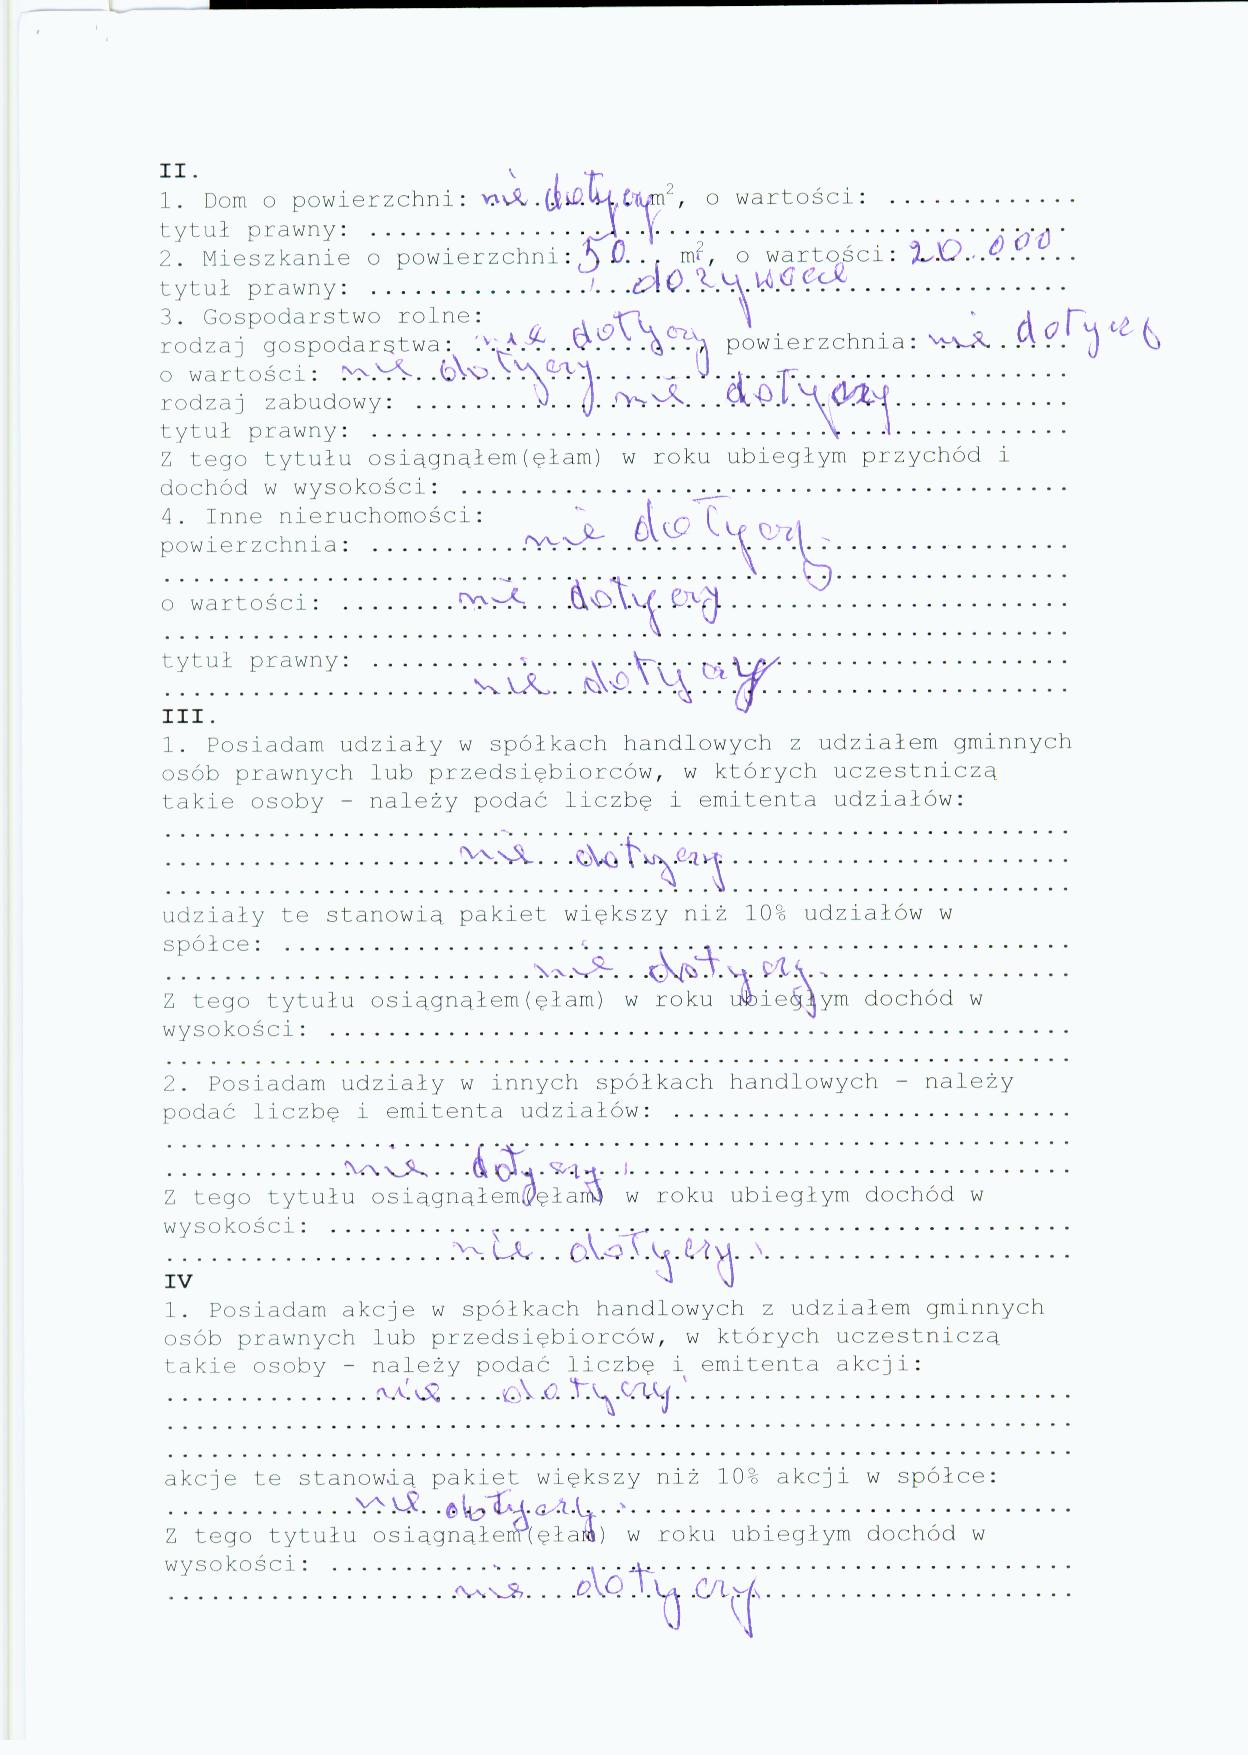 II.
1. Dom o powierzchni: nie dotyczy m², o wartości: .............
tytuł prawny: ...............................................
2. Mieszkanie o powierzchni: 50... m², o wartości: 20.000
tytuł prawny: ................dożywocie...............
3. Gospodarstwo rolne:
rodzaj gospodarstwa: nie dotyczy, powierzchnia: nie dotyczy
o wartości: nie dotyczy ................................
rodzaj zabudowy: .............nie dotyczy............
tytuł prawny: ...............................................
Z tego tytułu osiągnąłem(ęłam) w roku ubiegłym przychód i
dochód w wysokości: .........................................
4. Inne nieruchomości:
powierzchnia: ..........nie dotyczy.................
.............................................................
o wartości: ........nie dotyczy.......................
.............................................................
tytuł prawny: ...............................................
.....................nie dotyczy....................
III.
1. Posiadam udziały w spółkach handlowych z udziałem gminnych
osób prawnych lub przedsiębiorców, w których uczestniczą
takie osoby – należy podać liczbę i emitenta udziałów:
.............................................................
....................nie dotyczy.......................
.............................................................
udziały te stanowią pakiet większy niż 10% udziałów w
spółce: .....................................................
.........................nie dotyczy.................
Z tego tytułu osiągnąłem(ęłam) w roku ubiegłym dochód w
wysokości: ..................................................
.............................................................
2. Posiadam udziały w innych spółkach handlowych – należy
podać liczbę i emitenta udziałów: ...........................
.............................................................
............nie dotyczy..............................
Z tego tytułu osiągnąłem(ęłam) w roku ubiegłym dochód w
wysokości: ..................................................
...................nie dotyczy.....................
IV
1. Posiadam akcje w spółkach handlowych z udziałem gminnych
osób prawnych lub przedsiębiorców, w których uczestniczą
takie osoby – należy podać liczbę i emitenta akcji:
..............nie dotyczy..........................
.............................................................
.............................................................
akcje te stanowią pakiet większy niż 10% akcji w spółce:
.............nie dotyczy..............................
Z tego tytułu osiągnąłem(ęłam) w roku ubiegłym dochód w
wysokości: ..................................................
....................nie dotyczy.....................